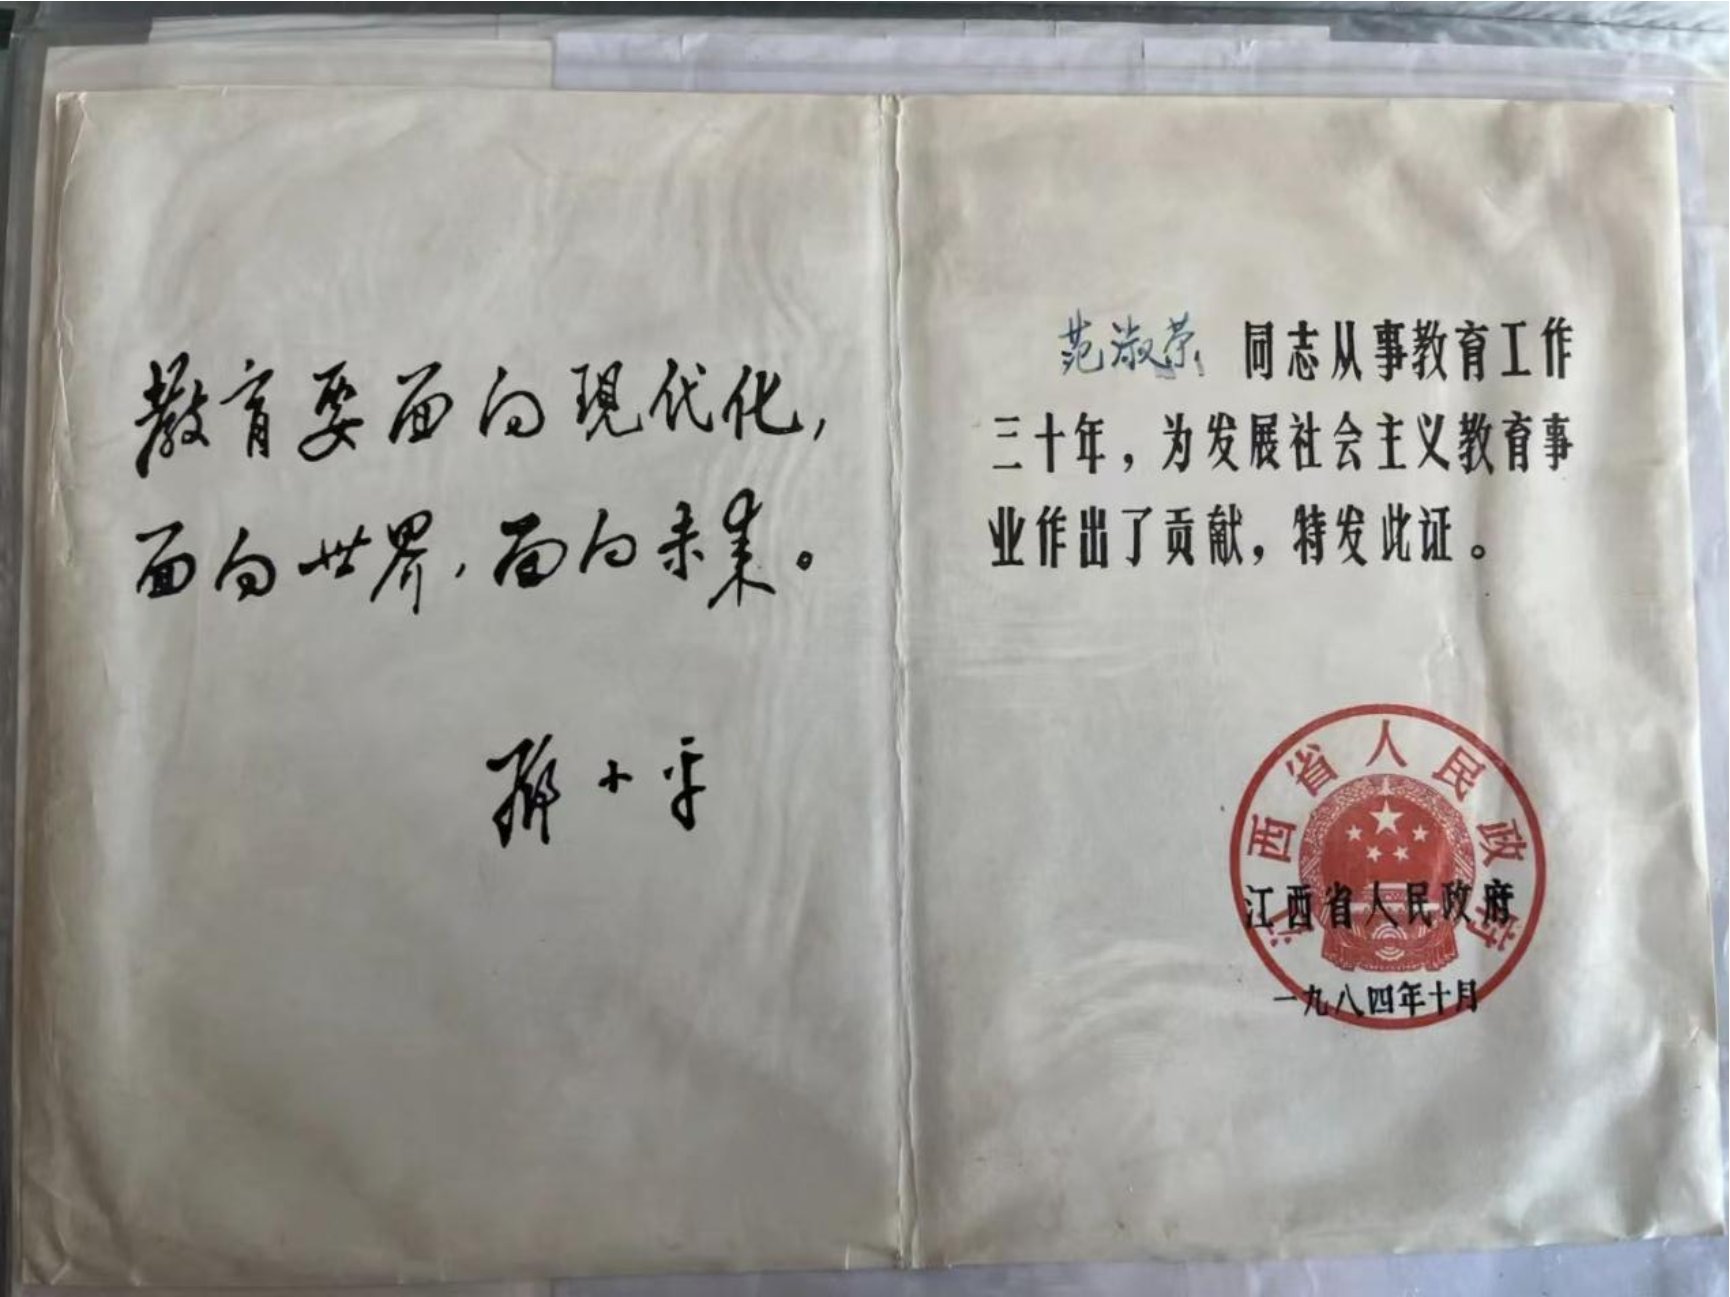 教育要面向现代化，
面向世界，面向未来。
邓小平
范淑荣 同志从事教育工作
三十年，为发展社会主义教育事
业作出了贡献，特发此证。
江西省人民政府
江西省人民政府
一九八四年十月